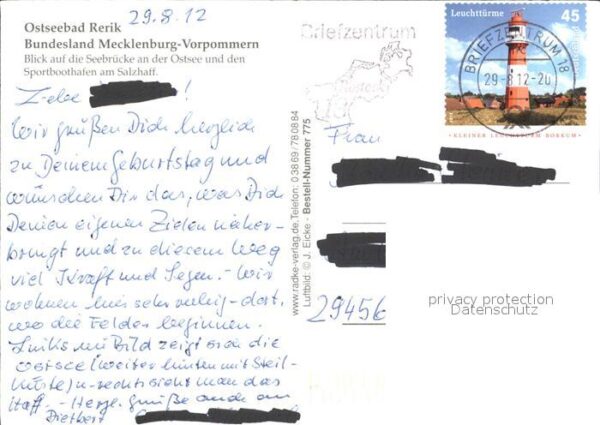 29.8.12
Ostseebad Rerik
Bundesland Mecklenburg-Vorpommern
Blick auf die Seebrücke an der Ostsee und den
Sportboothafen am Salzhaff.
Liebe !
Wir grüßen Dich herzlich
zu Deinem Geburtstag und
wünschen Dir das, was Dich
Deinen eigenen Zielen näher-
bringt und zu diesem Weg
viel Kraft und Segen. - Wir
wohnen hier sehr ruhig - dort,
wo die Felder beginnen.
Links im Bild zeigt sich die
Ostsee (weiter hinten mit Steil-
küste) u. rechts sieht man das
Haff. - Herzl. Grüße auch an
Dietbert
www.radke-verlag.de, Telefon: 03869/780884
Luftbild: © J. Eicke - Bestell-Nummer 775
Briefzentrum
Rostock
Leuchttürme 45
BRIEFZENTRUM 18
29-8.12-20
KLEINER LEUCHTTURM BORKUM
Frau
29456
privacy protection
Datenschutz